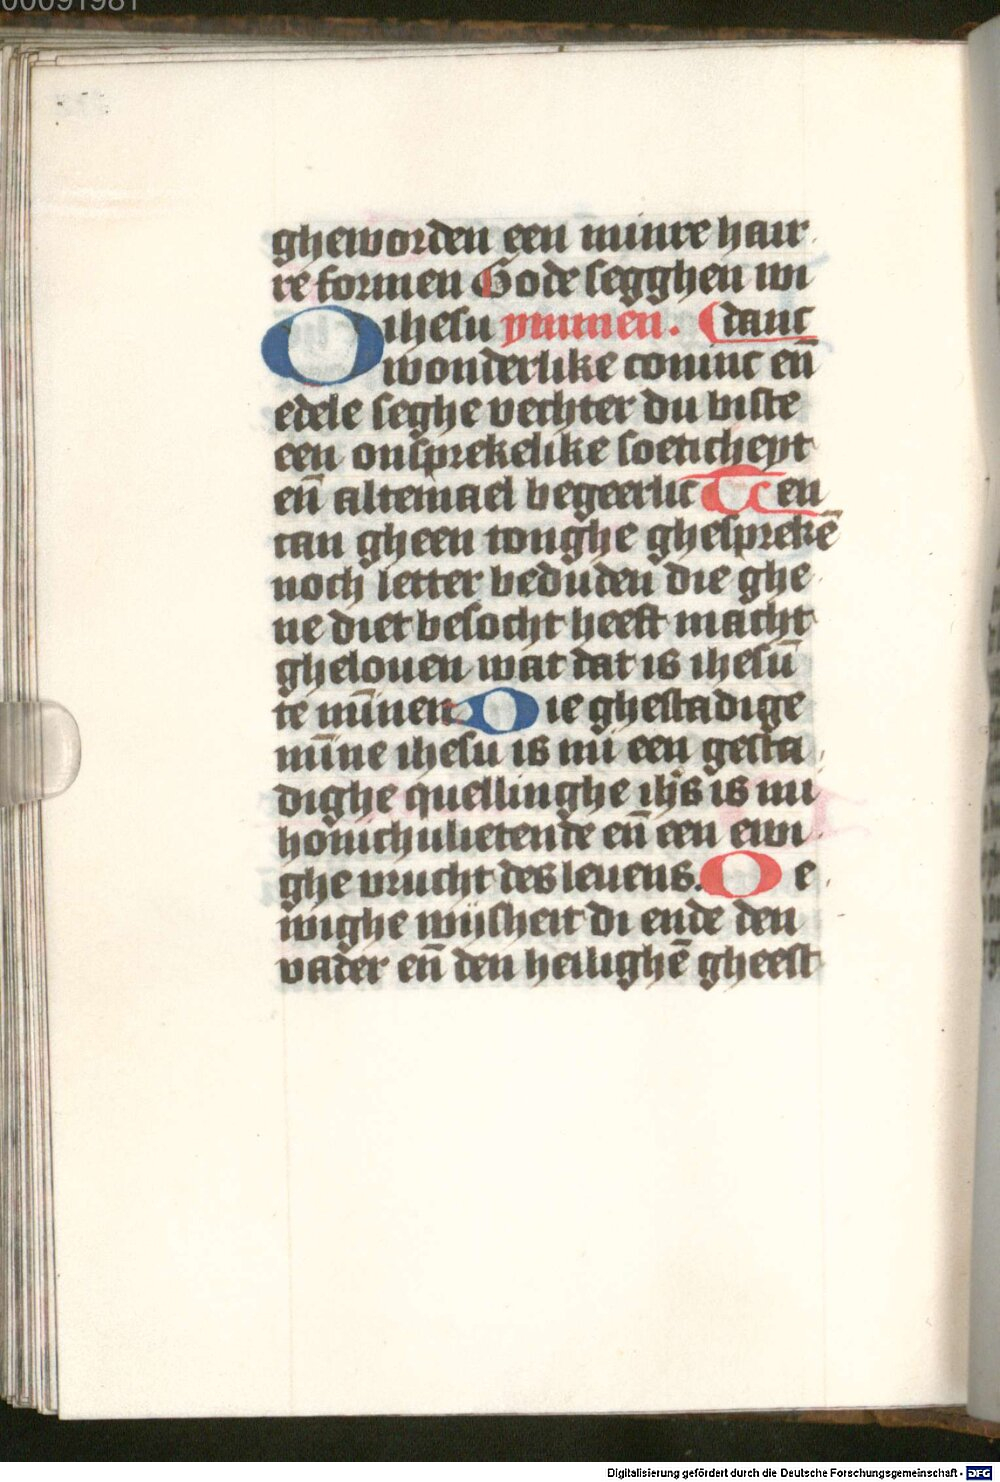 00091981
gheworden een minre hair
re formen Gode segghen wi
O ihesu ymmen. danc
wonderlike coninc en̄
edele seghe vechter du biste
een onsprekelike soeticheyt
en̄ altemael begeerlic Ten
can gheen tonghe ghesprekē
noch letter beduden die ghe
ne diet besocht heeft macht
ghelouen wat dat is ihesū
te mīnen Die ghestadige
mīne ihesu is mi een gesta
dighe quellinghe ihs̄ is mi
honichulietende en̄ een ewi
ghe vrucht des leuens. O e
wighe wijsheit di ende den
vader en̄ den heilighē gheest
Digitalisierung gefördert durch die Deutsche Forschungsgemeinschaft - DFG